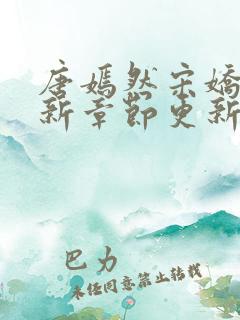 唐嫣然宋嬌
新章節更新
巴力
未经同意禁止转载